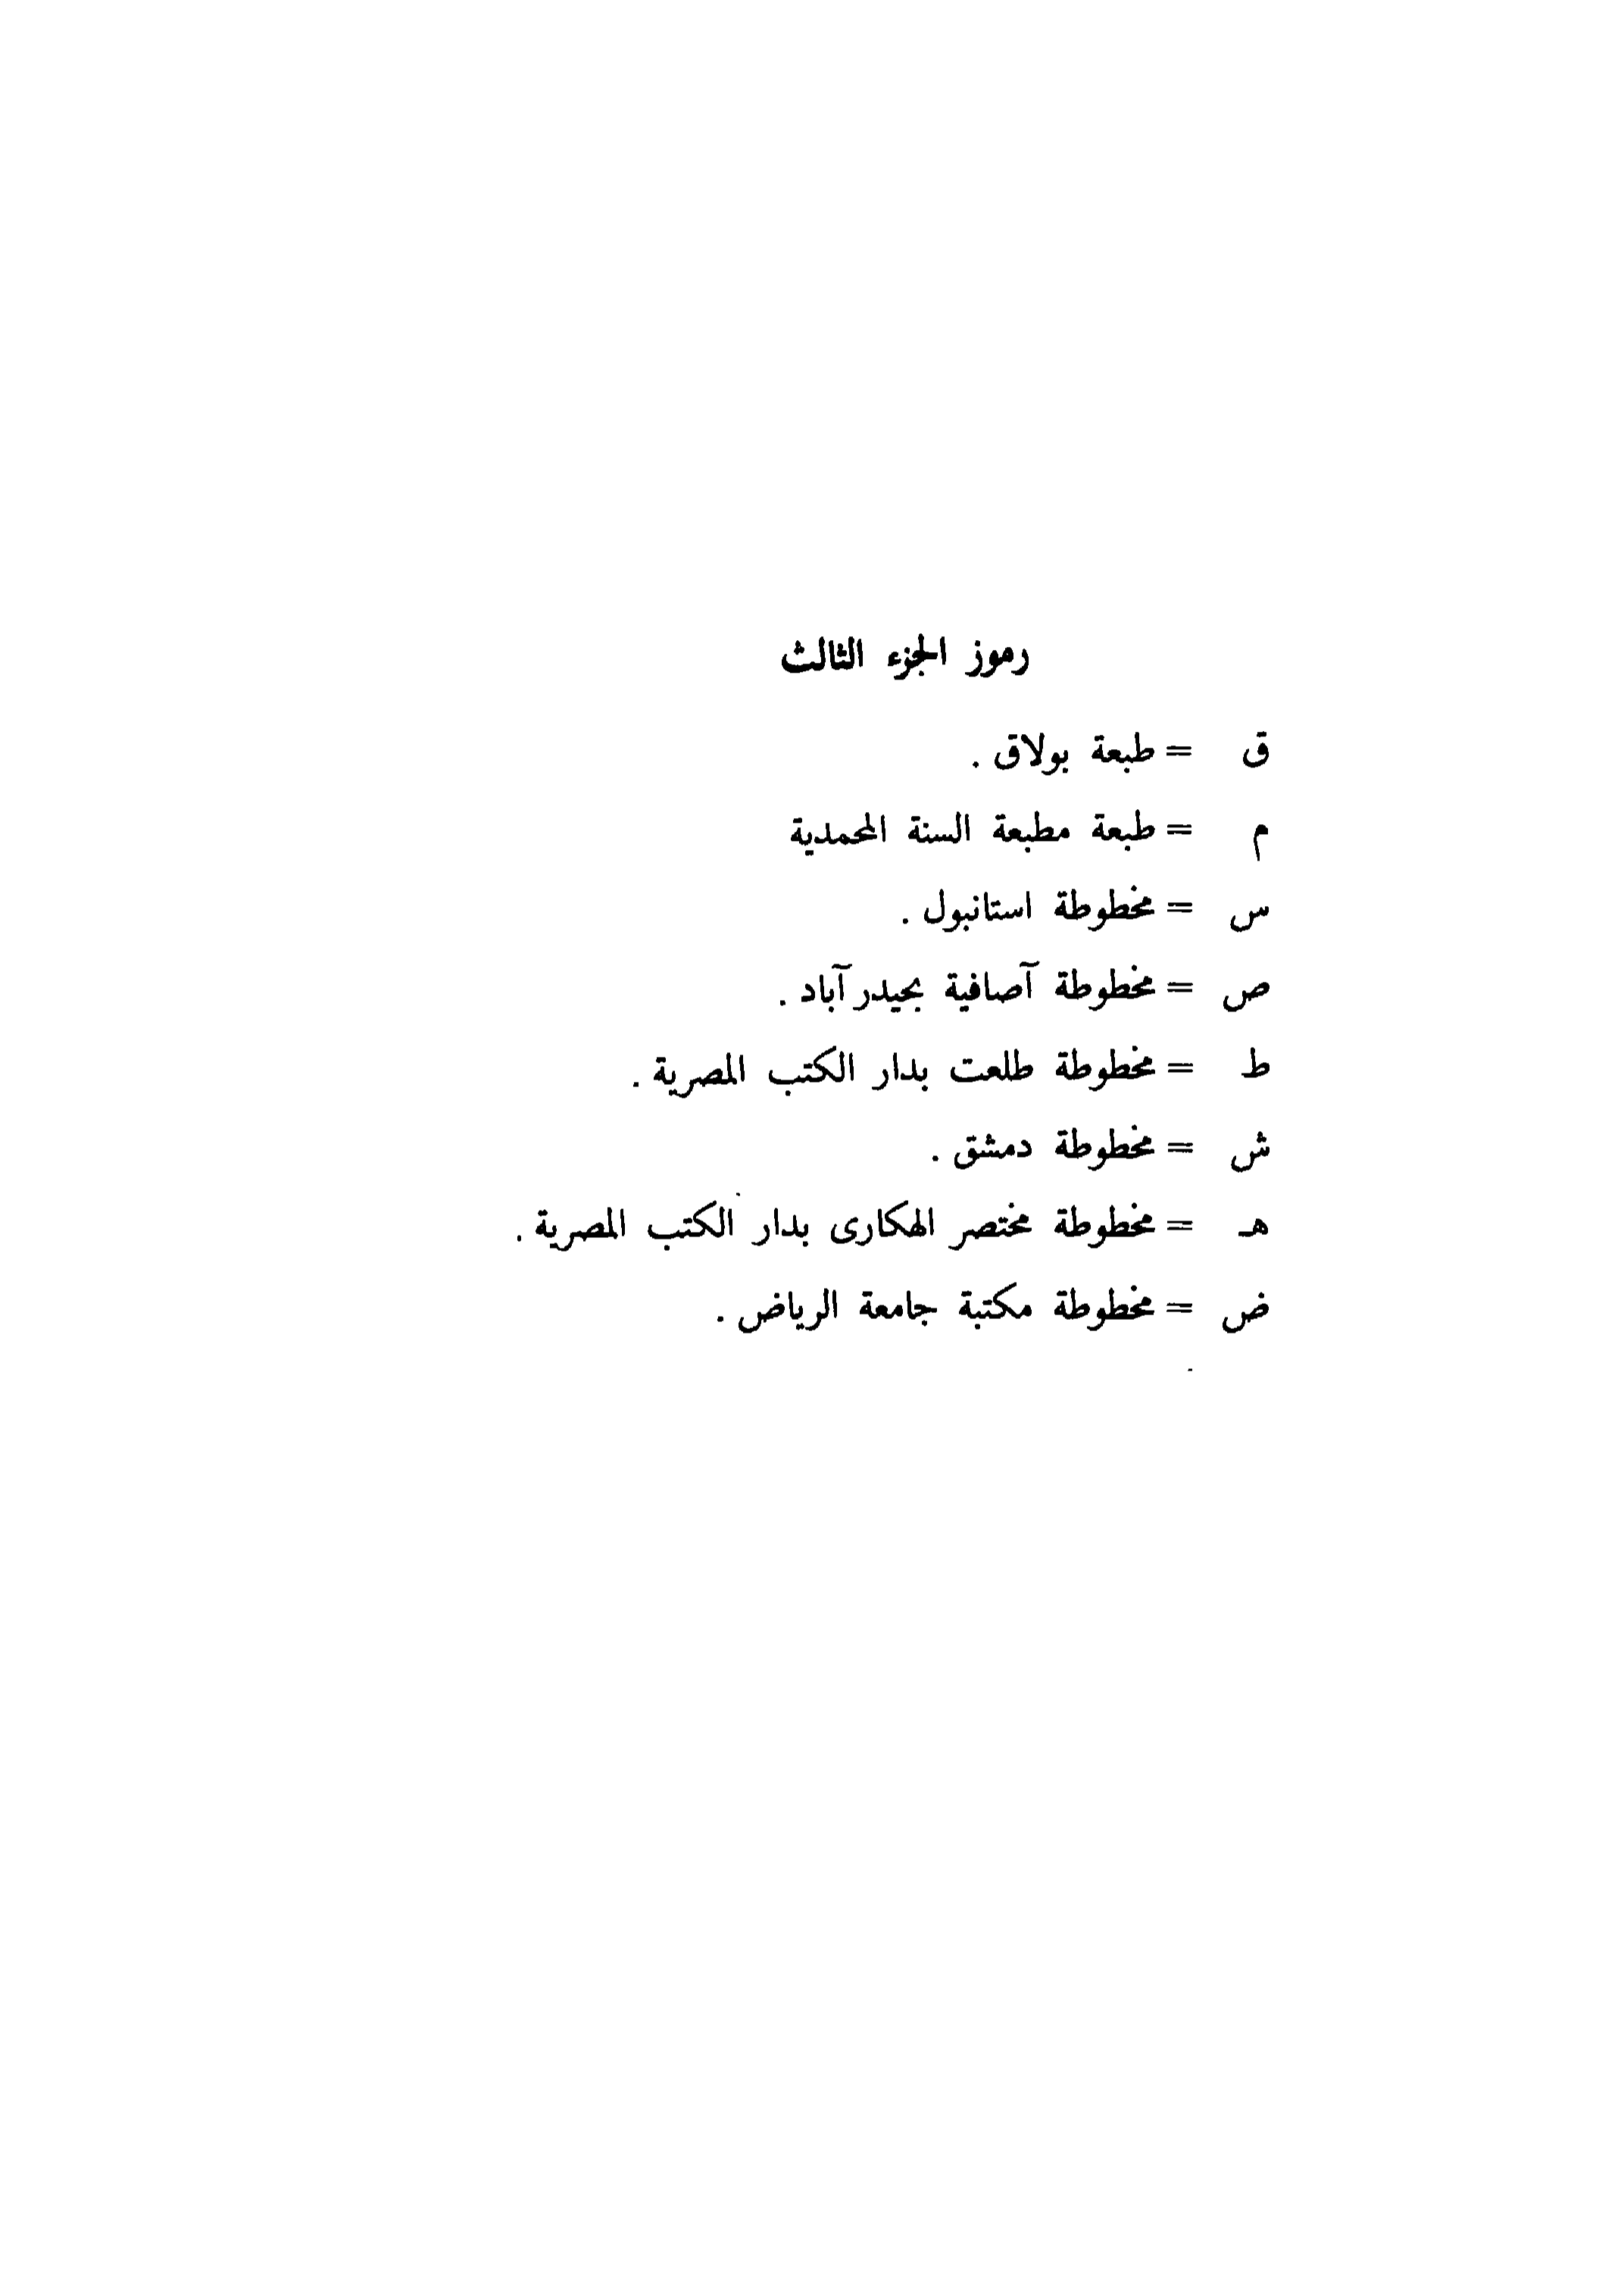 رموز الجزء الثالث
ق = طبعة بولاق .
م = طبعة مطبعة السنة المحمدية
س = مخطوطة استانبول .
ص = مخطوطة آصافية بحيدر آباد .
ط = مخطوطة طلعت بدار الكتب المصرية .
ش = مخطوطة دمشق .
هـ = مخطوطة مختصر الهكارى بدار الكتب المصرية .
ض = مخطوطة مكتبة جامعة الرياض .